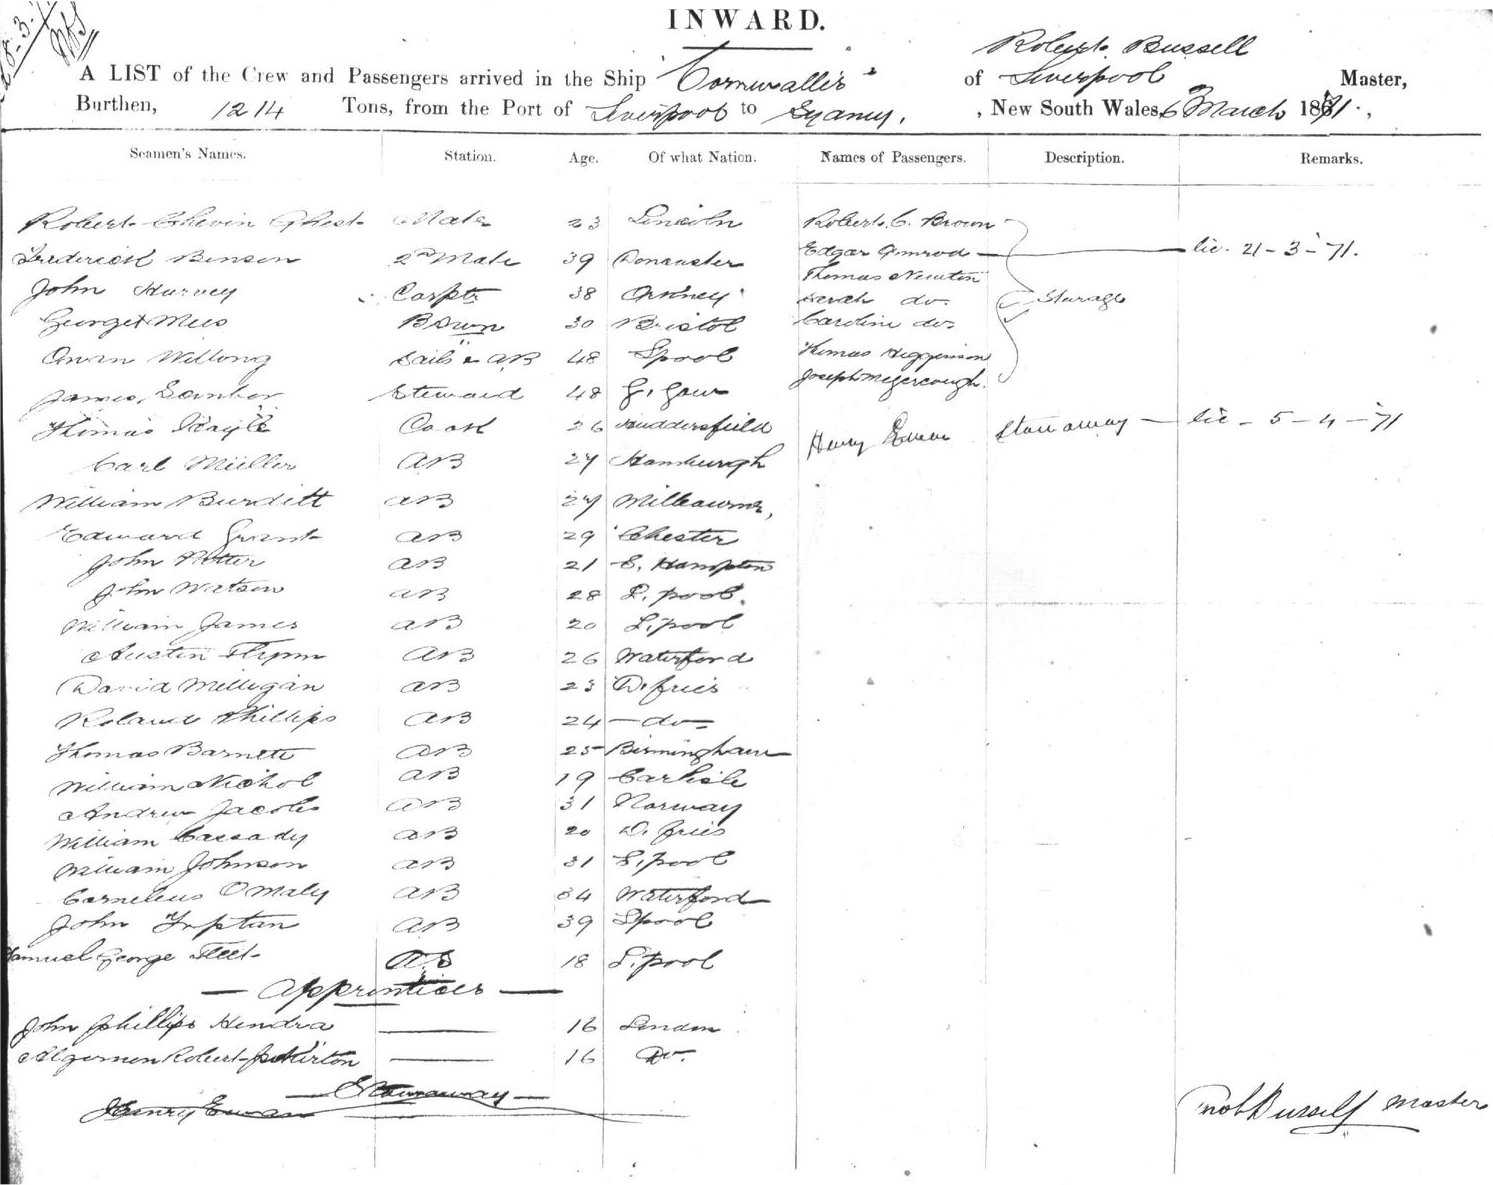 INWARD.
Robert Bussell
A LIST of the Crew and Passengers arrived in the Ship "Cornwallis" of Liverpool Master,
Burthen, 1214 Tons, from the Port of Liverpool to Sydney, , New South Wales, 6th March 1871.,
Seamen's Names. Station. Age. Of what Nation. Names of Passengers. Description. Remarks.
Robert Mate 23 Lincoln Robert C. Brown
Frederick Benson 2nd Mate 39 Doncaster Edgar lic. 21-3-71.
Thomas Newton
John Harvey Carptr 38 Orkney Sarah do. Sturage
George Mees Bswn 30 Bristol Caroline do.
Owen Sails & AB 48 Lpool Thomas Higginson
Joseph
James Steward 48 G. Gow
Thomas Cook 26 Huddersfield Henry Stowaway lic - 5 - 4 - 71
Carl Müller AB 27 Hamburgh
William Burditt AB 27
Edward Grant AB 29 Chester
John Potter AB 21 S. Hampton
John Watson AB 28 L. pool.
William James AB 20 L. pool
Austin Flynn AB 26 Waterford
David Milligan AB 23 D. fries
Roland Phillips AB 24 - do -
Thomas Barnett AB 25 Birmingham
William Nichol AB 19 Carlisle
Andrew Jacobs AB 31 Norway
William Cassady AB 20 D. fries
William Johnson AB 31 L. pool
Cornelius O Maly AB 34 Waterford
John AB 39 Lpool
Samuel George 18 L. pool
— Apprentices —
John Phillips Hendra 16 London
Algernon Robert 16 Do.
— Stowaway —
Henry Ewan
Robt Bussell Master